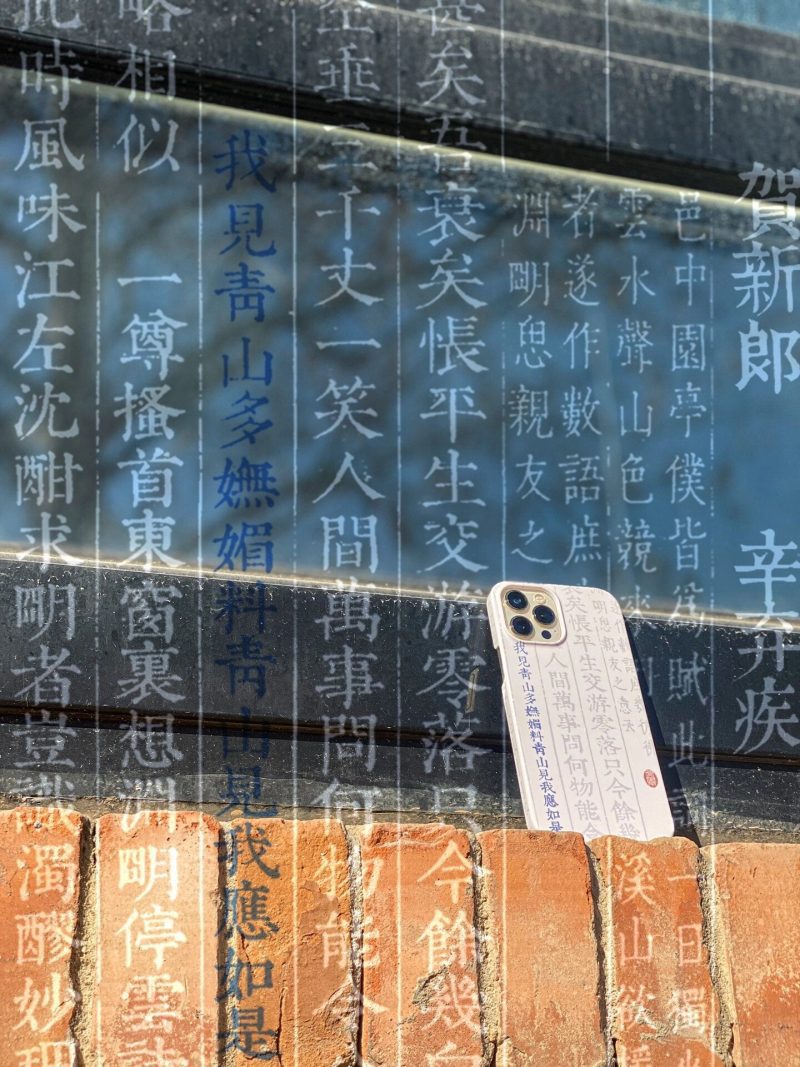 賀新郎 辛弃疾
邑中園亭僕皆爲賦此詞一日獨坐
雲水聲山色競來
溪山欲援
者遂作數語庶
淵明思親友之
甚矣吾衰矣悵平生交游零落只今餘幾白
空垂三千丈一笑人間萬事問何物能令
我見青山多嫵媚料青山見我應如是
略相似 一尊搔首東窗裏想淵明停雲詩
此時風味江左沈酣求明者豈識濁醪妙理
明思親友之意
矣悵平生交游零落只今餘幾
人間萬事問何物能令
我見青山多嫵媚料青山見我應如是